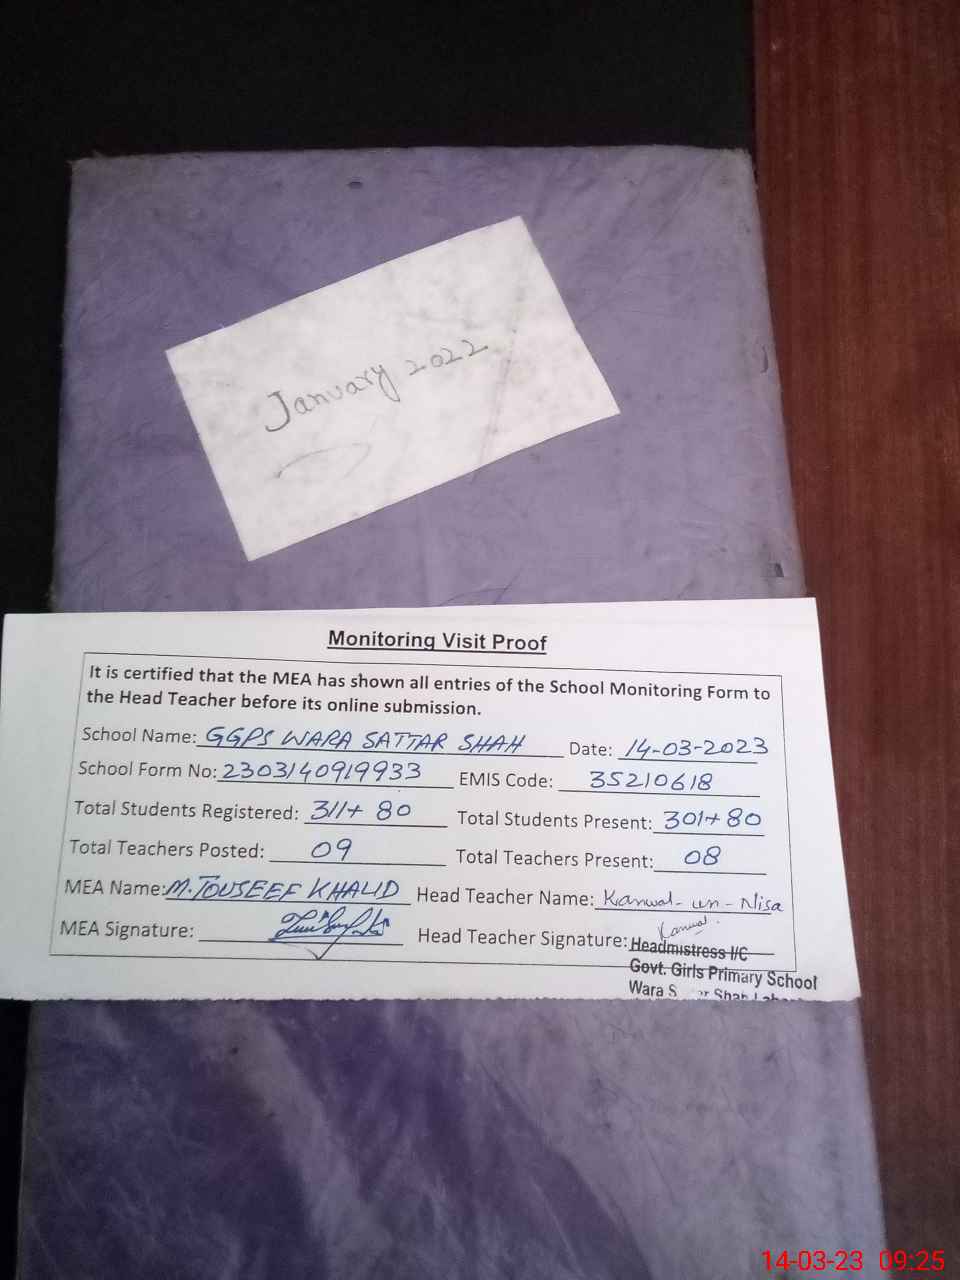 January 2022
Monitoring Visit Proof
It is certified that the MEA has shown all entries of the School Monitoring Form to
the Head Teacher before its online submission.
School Name: GGPS WARA SATTAR SHAH Date: 14-03-2023
School Form No: 2303140919933 EMIS Code: 35210618
Total Students Registered: 311+ 80 Total Students Present: 301+80
Total Teachers Posted: 09 Total Teachers Present: 08
MEA Name: M. TOUSEEF KHALID Head Teacher Name: Kanwal-un-Nisa
MEA Signature: Head Teacher Signature: Kanwal.
Headmistress I/C
Govt. Girls Primary School
Wara Shah
14-03-23 09:25